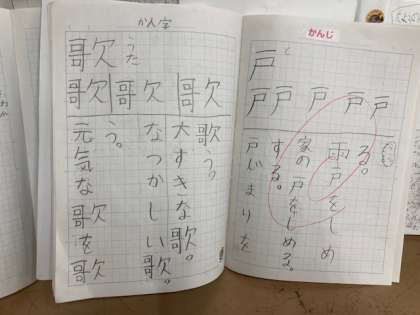 かん字
歌
うた
歌 歌 歌
元気な歌を歌
う。
なつかしい歌。
大すきな歌。
歌う。
かんじ
戸
と
戸戸 戸 戸戸
戸じまりを
する。
家の戸をしめる。
雨戸をしめ
る。